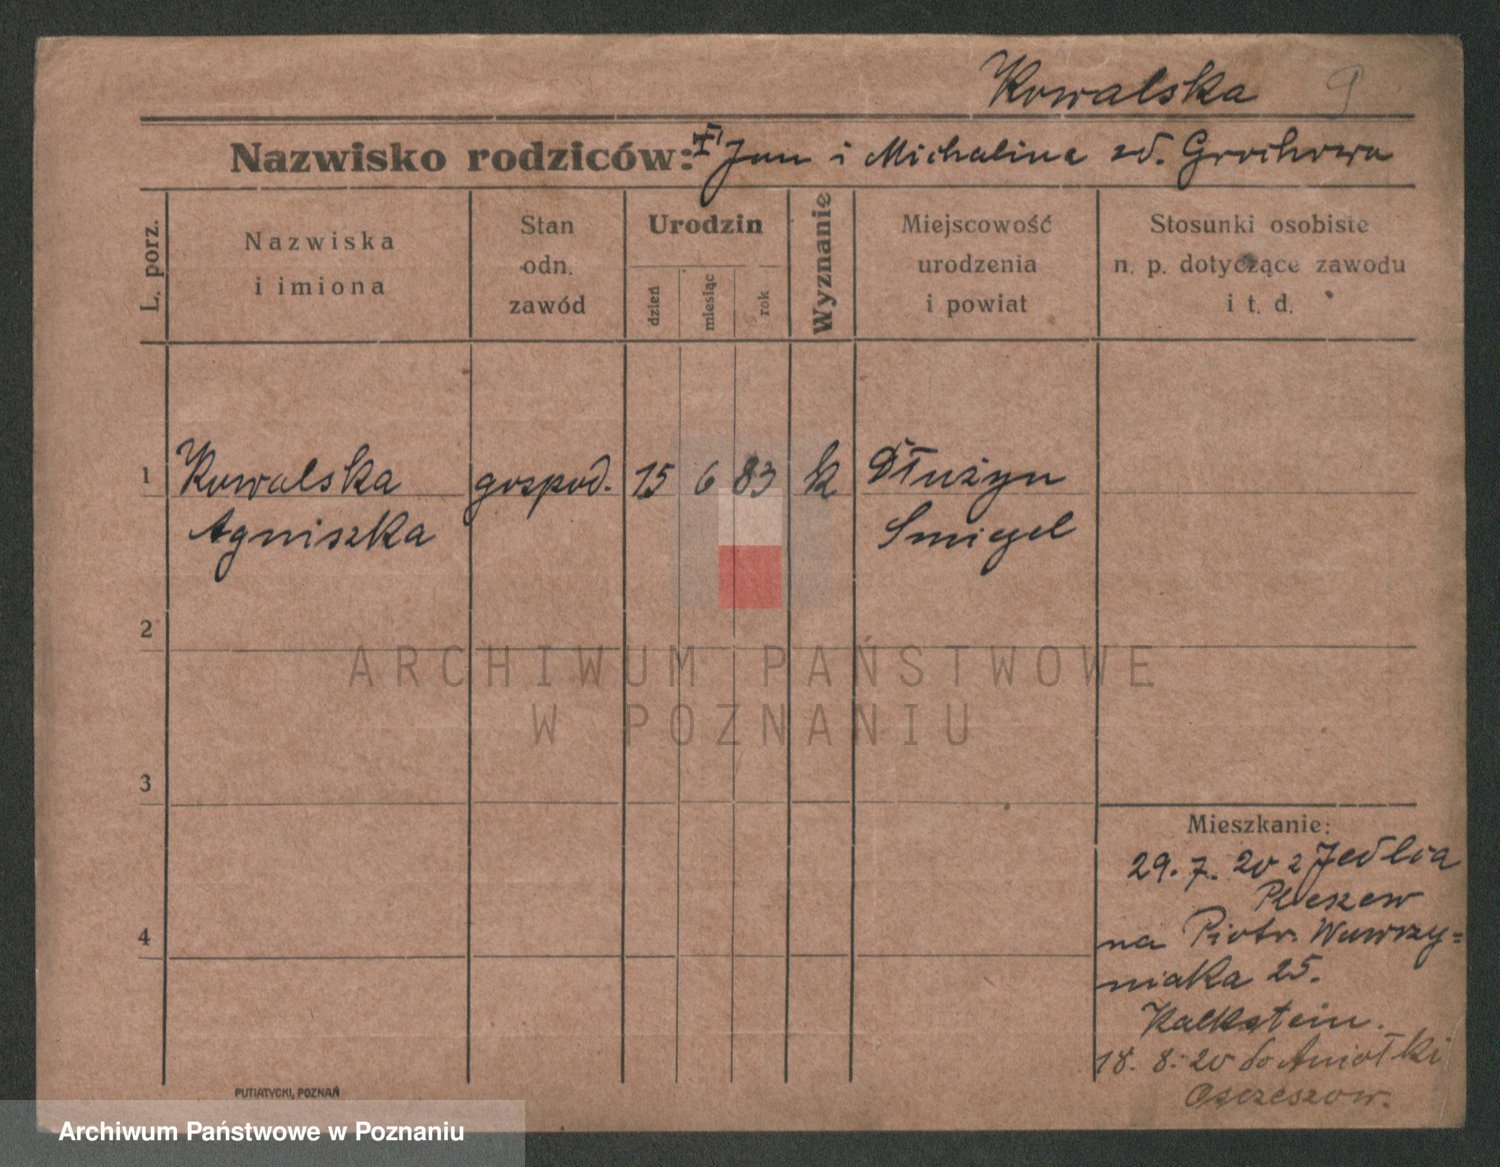 Kowalska 9
Nazwisko rodziców: Jan i Michalina zd. Grochowa
L. porz.
Nazwiska
i imiona
Stan
odn.
zawód
Urodzin
dzień
miesiąc
rok
Wyznanie
Miejscowość
urodzenia
i powiat
Stosunki osobiste
n. p. dotyczące zawodu
i t. d.
1 Kowalska gospod. 15 6 83 k Dłużyn
Agniszka Smigel
2
3
4
Mieszkanie:
29. 7. 20 z Jedlca
Pleszew
na Piotr. Wawrzy=
niaka 25.
Kalkstein.
18. 8. 20 do Aniołki
Oszeszow.
PUTIATYCKI, POZNAŃ
ARCHIWUM PAŃSTWOWE
W POZNANIU
Archiwum Państwowe w Poznaniu